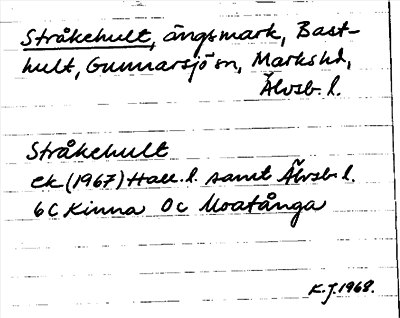 Stråkehult, ängsmark, Bast-
hult, Gunnarsjö sn, Marks hd,
Älvsb. l.
Stråkehult
ek (1967) Hall. l. samt Älvsb. l.
6C Kinna 0c Moatånga
K.J. 1968.